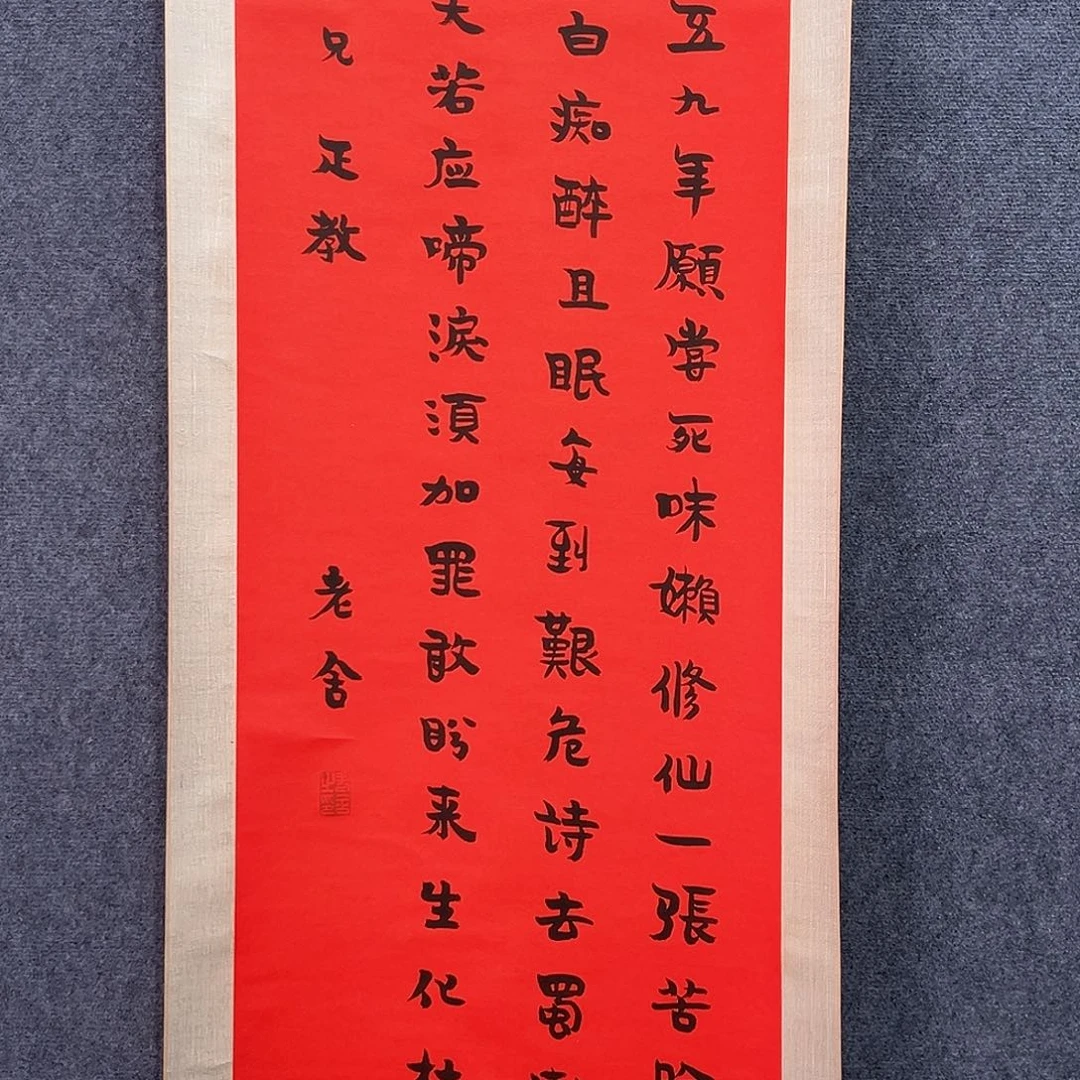 五九年願尝死味嬾修仙一張苦吟
白痴醉且眠每到艱危诗去蜀
天若应啼淚須加罪敢盼来生化杜
兄正教 老舍